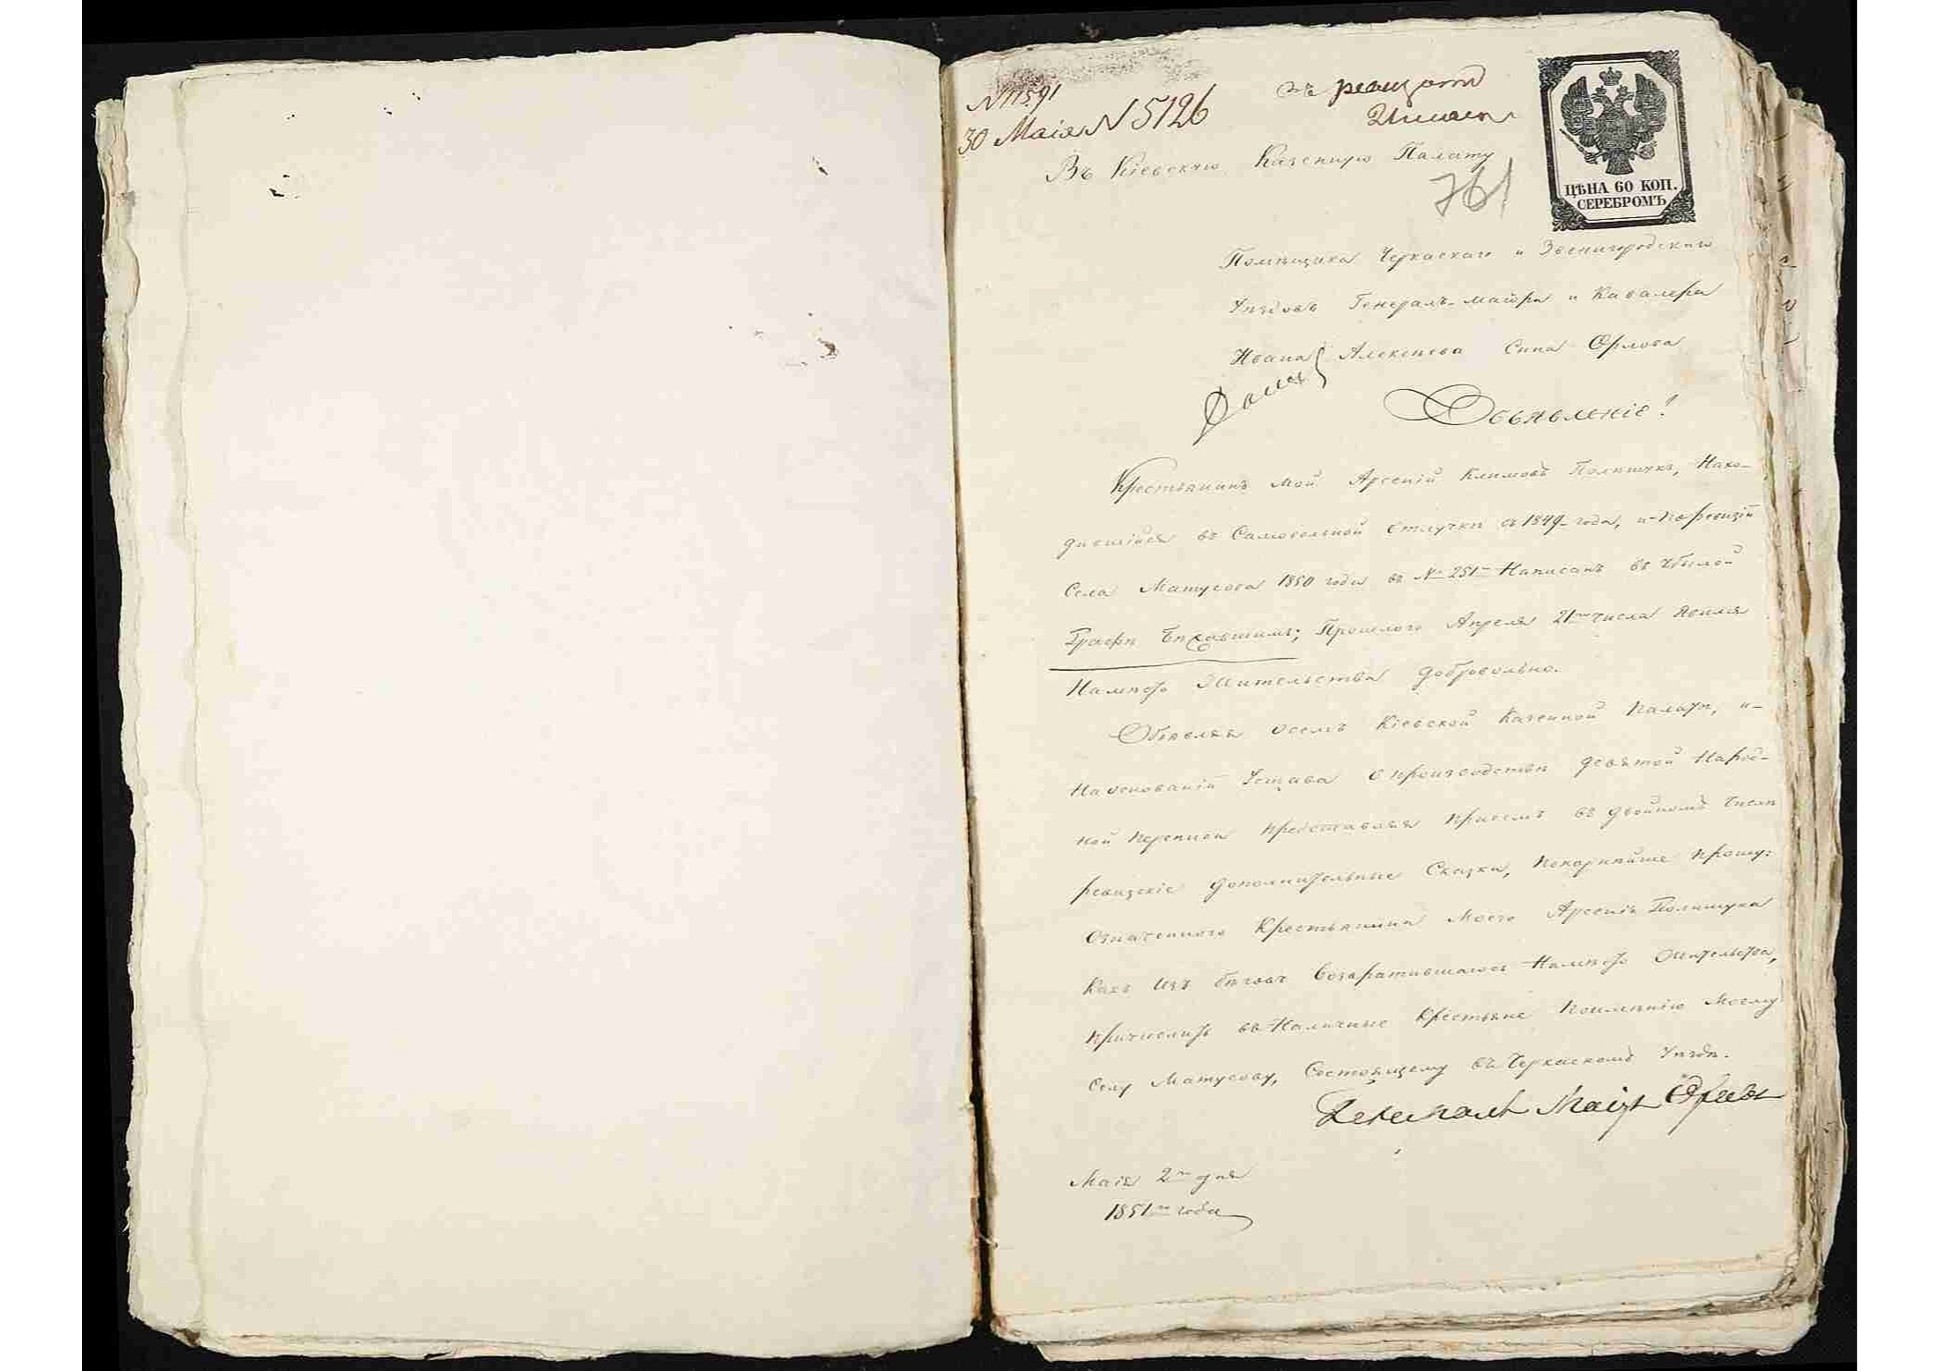 N 11591
30 Маія N 5126
Въ Кіевскую Казенную Палату
761
ЦѢНА 60 КОП.
СЕРЕБРОМЪ
Помѣщика Черкаскаго и Звенигородскаго
Уѣздовъ Генералъ-маіора и Кавалера
Ивана Алексѣева Сына Орлова
Объявленіе!
Крестьянинъ мой Арсеній Климовъ Полищукъ, Нахо-
дившійся въ Самовольной отлучкѣ съ 1849 года, и по ревизіи
Села Матусова 1850 года въ № 251 Написанъ въ Убылой
Графѣ Бѣжавшимъ; Прошлого Апреля 21 числа Явился
На мѣсто Жительства добровольно.
Объявляя осемъ Кіевской Казенной Палатѣ, и
На основаніи Устава о производствѣ девятой Народ-
ной переписи представляя присемъ въ двойномъ Числѣ
ревизскіе дополнительные Сказки, покорнѣйше прошу:
Означенного Крестьянина Моего Арсенія Полищука
какъ изъ бѣговъ возвратившагося На мѣсто Жительства,
причислить въ Наличные Крестьяне по имѣнію Моему
Селу Матусову, Состоящему въ Черкаскомъ Уѣздѣ.
Генералъ Маіоръ Орловъ
Маія 2 дня
1851 года